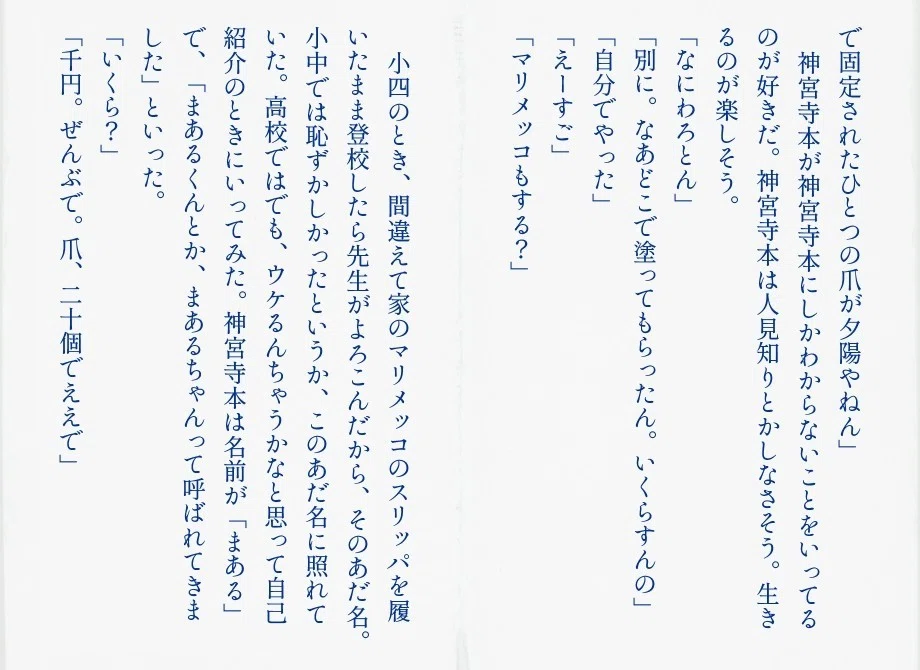 で固定されたひとつの爪が夕陽やねん」
神宮寺本が神宮寺本にしかわからないことをいってる
のが好きだ。神宮寺本は人見知りとかしなさそう。生き
るのが楽しそう。
「なにわろとん」
「別に。なあどこで塗ってもらったん。いくらすんの」
「自分でやった」
「えーすご」
「マリメッコもする？」
小四のとき、間違えて家のマリメッコのスリッパを履
いたまま登校したら先生がよろこんだから、そのあだ名。
小中では恥ずかしかったというか、このあだ名に照れて
いた。高校ではでも、ウケるんちゃうかなと思って自己
紹介のときにいってみた。神宮寺本は名前が「まある」
で、「まあるくんとか、まあるちゃんって呼ばれてきま
した」といった。
「いくら？」
「千円。ぜんぶで。爪、二十個でええで」